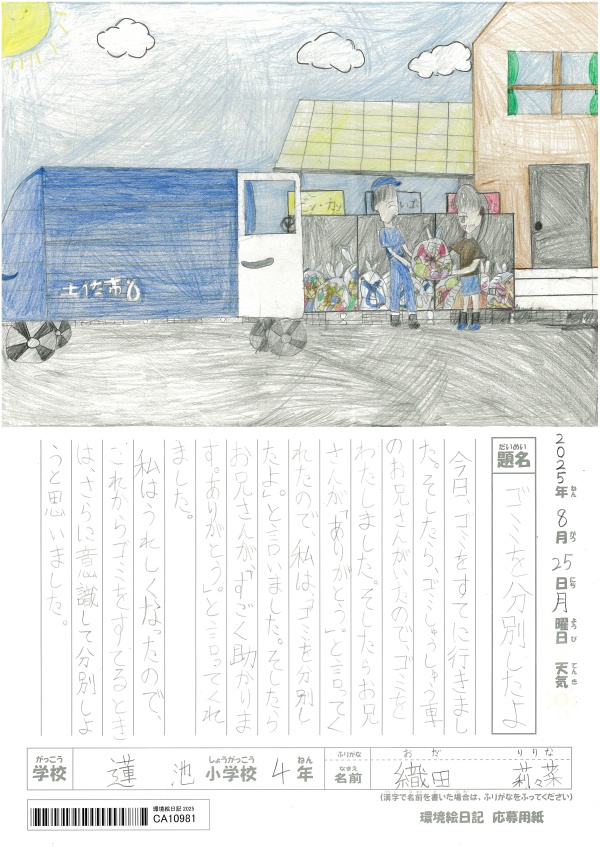 土佐市
2025年ねん 8月がつ 25日にち 月曜日ようび 天気てんき
題名だいめい ゴミを分別したよ
今日、ゴミをすてに行きまし
た。そしたら、ゴミしゅうしゅう車
のお兄さんがいたので、ゴミを
わたしました。そしたらお兄
さんが「ありがとう。」と言ってく
れたので、私は、「ゴミを分別し
たよ」。と言いました。そしたら
お兄さんが、「すごく助かりま
す。ありがとう」。と言ってくれ
ました。
私はうれしくなったので、
これからゴミをすてるとき
は、さらに意識して分別しよ
うと思いました。
学校がっこう 蓮池 小学校しょうがっこう 4年ねん
ふりがな おだ りりな
名前なまえ 織田 莉々菜
(漢字で名前を書いた場合は、ふりがなをふってください)
環境絵日記 2025
CA10981
環境絵日記 応募用紙